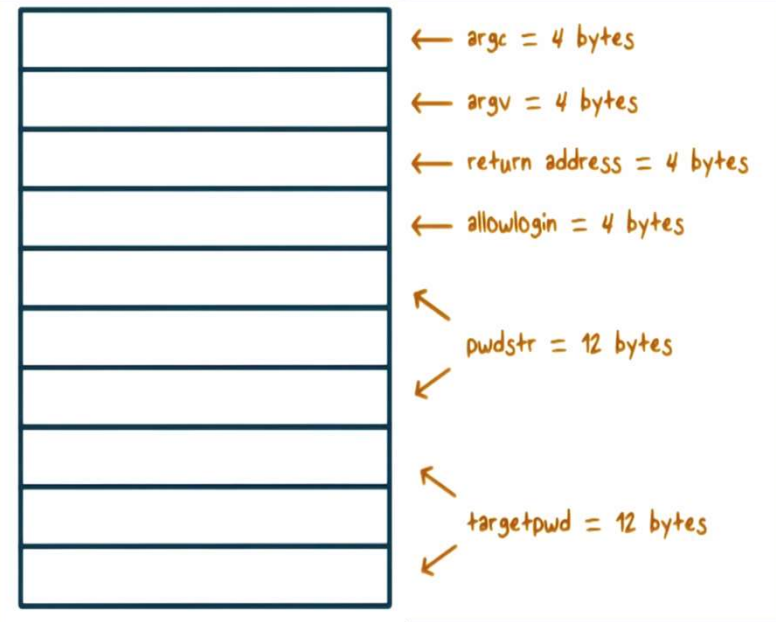 ← argc = 4 bytes
← argv = 4 bytes
← return address = 4 bytes
← allowlogin = 4 bytes
pwdstr = 12 bytes
targetpwd = 12 bytes